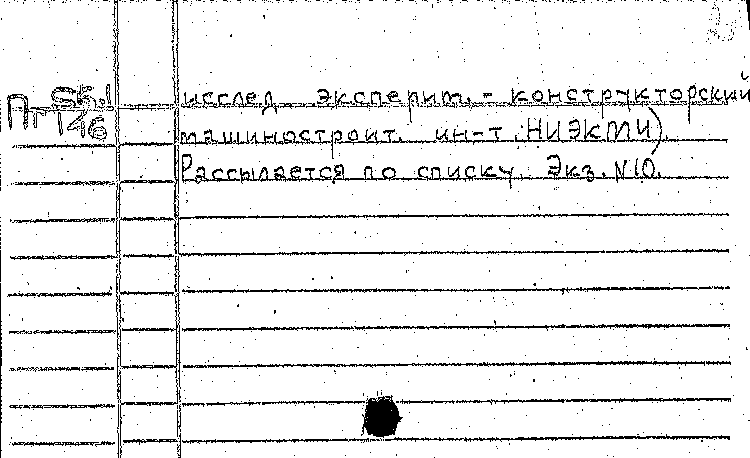 исслед. эксперим.-конструкторский
машиностроит. ин-т. НИЭКМИ).
Рассылается по списку. Экз. №10.